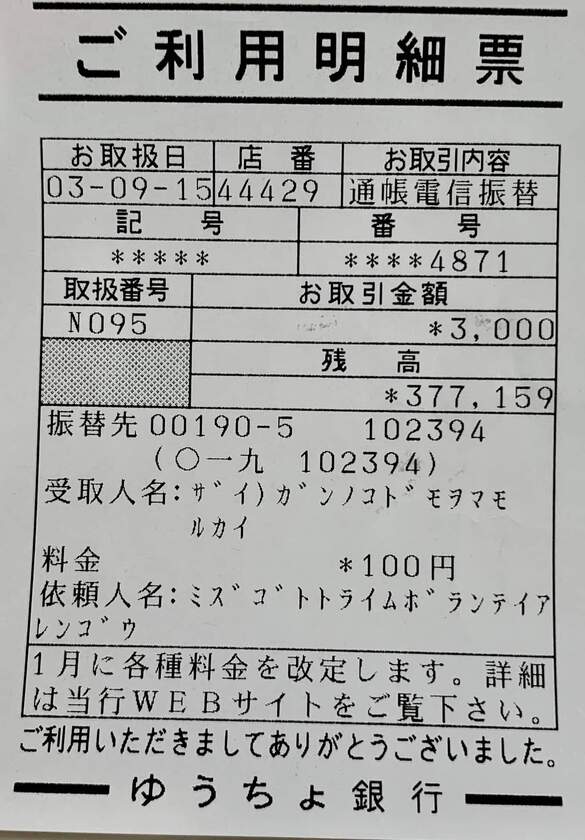 ご利用明細票
お取扱日 店番 お取引内容
03-09-15 44429 通帳電信振替
記号 番号
***** ****4871
取扱番号 お取引金額
N095 *3,000
残高
*377,159
振替先 00190-5 102394
(〇一九 102394)
受取人名:ザイ)ガンノコドモヲマモ
ルカイ
料金 *100円
依頼人名:ミズゴトトライムボランテイア
レンゴウ
1月に各種料金を改定します。詳細
は当行WEBサイトをご覧下さい。
ご利用いただきましてありがとうございました。
ゆうちょ銀行